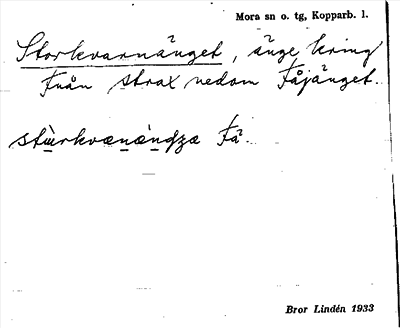 Mora sn o. tg, Kopparb. l.
Storkvarnänget, änge kring
från strax nedom Fåjänget.
stu̱rkvæṉæ̀ṉdzæ Få.
Bror Lindén 1933